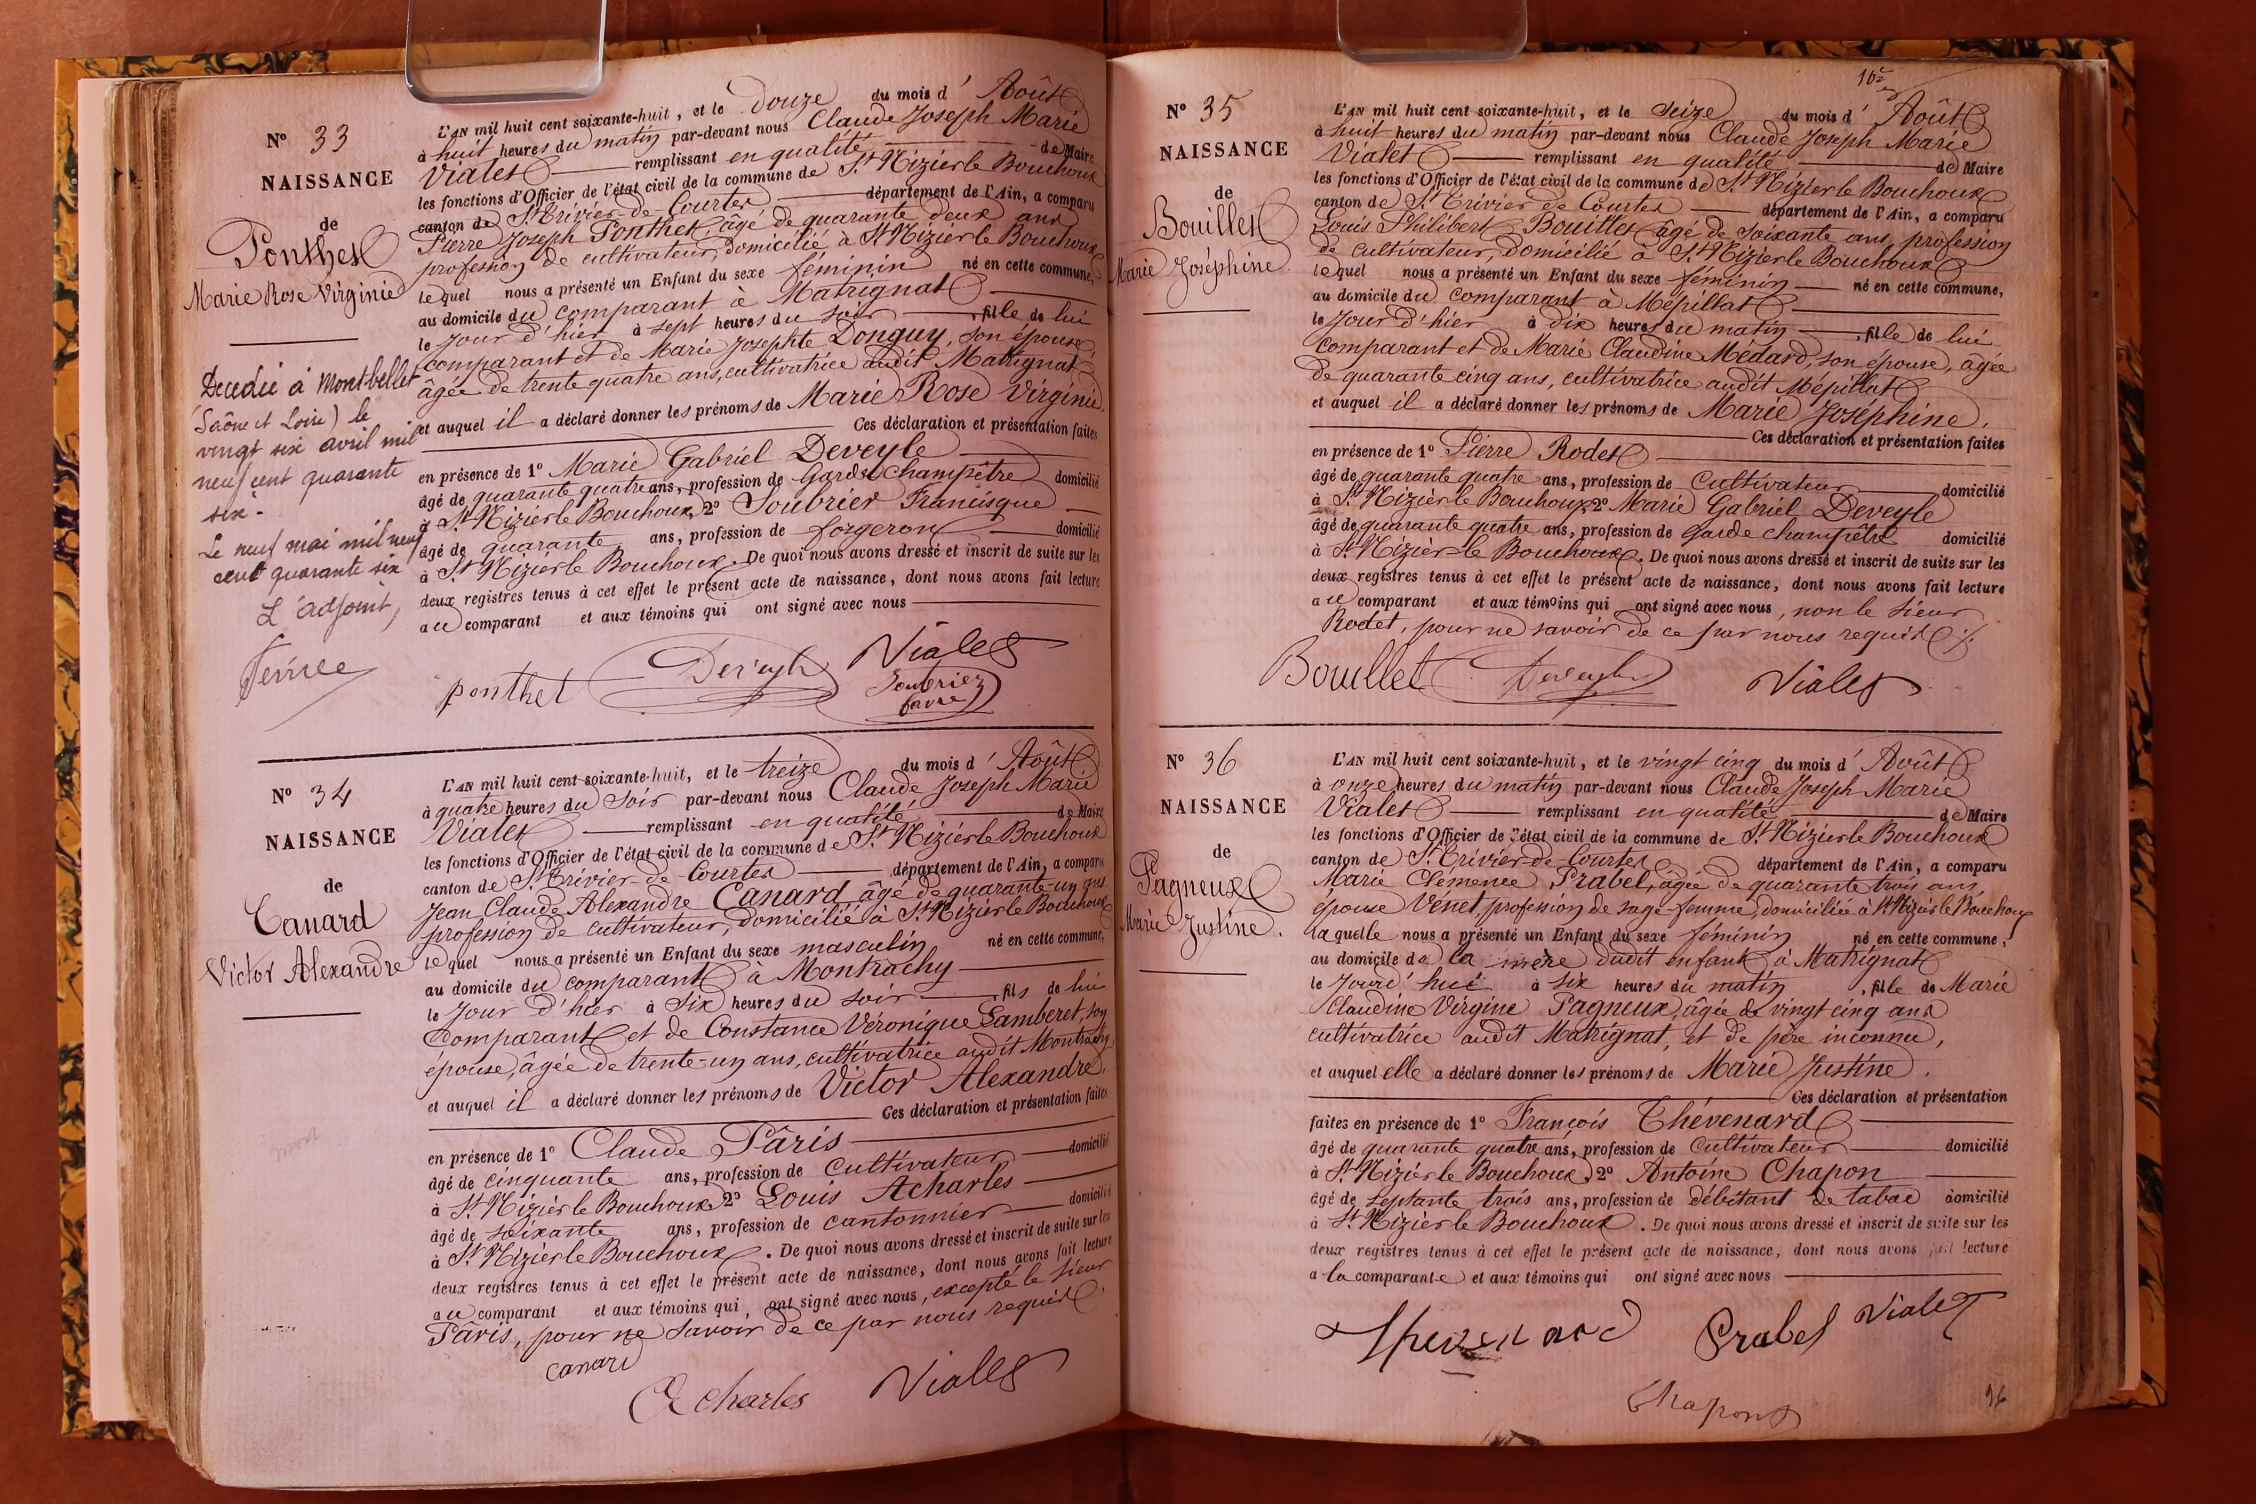 N° 33
NAISSANCE
de
Ponthet
Marie Rose Virginie
Decedée à Montbellet
(Saône et Loire) le
vingt six avril mil
neuf cent quarante
six.
Le neuf mai mil neuf
cent quarante six
L'adjoint,
L'AN mil huit cent soixante-huit, et le douze du mois d'Août
à huit heures du matin par-devant nous Claude Joseph Marie
Vialet remplissant en qualité de Maire
les fonctions d'Officier de l'état civil de la commune de St Nizier le Bouchoux
canton de St Trivier-de-Courtes département de l'Ain, a comparu
Pierre Joseph Ponthet, âgé de quarante deux ans
profession de cultivateur, domicilié à St Nizier le Bouchoux
lequel nous a présenté un Enfant du sexe féminin né en cette commune,
au domicile du comparant à Matrignat
le jour d'hier à sept heures du soir, fille de lui
comparant et de Marie Josephte Donguy, son épouse,
âgée de trente quatre ans, cultivatrice audit Matrignat
et auquel il a déclaré donner les prénoms de Marie Rose Virginie.
Ces déclaration et présentation faites
en présence de 1° Marie Gabriel Deveyle
âgé de quarante quatre ans, profession de Garde champêtre domicilié
à St Nizier le Bouchoux, 2° Soubrier Francisque
âgé de quarante ans, profession de forgeron domicilié
à St Nizier le Bouchoux. De quoi nous avons dressé et inscrit de suite sur les
deux registres tenus à cet effet le présent acte de naissance, dont nous avons fait lecture
au comparant et aux témoins qui ont signé avec nous
ponthet Deveyle Vialet
Soubriez
favre
N° 34
NAISSANCE
de
Canard
Victor Alexandre
L'AN mil huit cent soixante-huit, et le treize du mois d'Août
à quatre heures du soir par-devant nous Claude Joseph Marie
Vialet remplissant en qualité de Maire
les fonctions d'Officier de l'état civil de la commune de St Nizier le Bouchoux
canton de St Trivier-de-Courtes département de l'Ain, a comparu
Jean Claude Alexandre Canard âgé de quarante-un ans
profession de cultivateur, domicilié à St Nizier le Bouchoux
lequel nous a présenté un Enfant du sexe masculin né en cette commune,
au domicile du comparant à Montrachy
le jour d'hier à six heures du soir, fils de lui
comparant et de Constance Véronique Lamberet, son
épouse, âgée de trente-un ans, cultivatrice audit Montrachy
et auquel il a déclaré donner les prénoms de Victor Alexandre.
Ces déclaration et présentation faites
en présence de 1° Claude Pâris
âgé de cinquante ans, profession de cultivateur domicilié
à St Nizier le Bouchoux, 2° Louis Acharles
âgé de soixante ans, profession de cantonnier domicilié
à St Nizier le Bouchoux. De quoi nous avons dressé et inscrit de suite sur les
deux registres tenus à cet effet le présent acte de naissance, dont nous avons fait lecture
au comparant et aux témoins qui ont signé avec nous, excepté le sieur
Pâris, pour ne savoir de ce par nous requis.
canard
Acharles Vialet
N° 35
NAISSANCE
de
Bouillet
Marie Joséphine
L'AN mil huit cent soixante-huit, et le seize du mois d'Août
à huit heures du matin par-devant nous Claude Joseph Marie
Vialet remplissant en qualité de Maire
les fonctions d'Officier de l'état civil de la commune de St Nizier le Bouchoux
canton de St Trivier de Courtes département de l'Ain, a comparu
Louis Philibert Bouillet âgé de soixante ans, profession
de cultivateur, domicilié à St Nizier le Bouchoux
lequel nous a présenté un Enfant du sexe féminin né en cette commune,
au domicile du comparant à Mépillat
le jour d'hier à dix heures du matin, fille de lui
comparant et de Marie Claudine Médard, son épouse, âgée
de quarante cinq ans, cultivatrice audit Mépillat
et auquel il a déclaré donner les prénoms de Marie Joséphine.
Ces déclaration et présentation faites
en présence de 1° Pierre Rodet
âgé de quarante quatre ans, profession de cultivateur domicilié
à St Nizier le Bouchoux, 2° Marie Gabriel Deveyle
âgé de quarante quatre ans, profession de Garde champêtre domicilié
à St Nizier le Bouchoux. De quoi nous avons dressé et inscrit de suite sur les
deux registres tenus à cet effet le présent acte de naissance, dont nous avons fait lecture
au comparant et aux témoins qui ont signé avec nous, non le sieur
Rodet, pour ne savoir de ce par nous requis ./.
Bouillet Deveyle Vialet
N° 36
NAISSANCE
de
Pagneux
Marie Justine.
L'AN mil huit cent soixante-huit, et le vingt cinq du mois d'Août
à onze heures du matin par-devant nous Claude Joseph Marie
Vialet remplissant en qualité de Maire
les fonctions d'Officier de l'état civil de la commune de St Nizier le Bouchoux
canton de St Trivier-de-Courtes département de l'Ain, a comparu
Marie Clémence Prabel, âgée de quarante trois ans,
épouse Venet, profession de sage-femme, domiciliée à St Nizier le Bouchoux
laquelle nous a présenté un Enfant du sexe féminin né en cette commune,
au domicile de la mère dudit enfant à Matrignat
le jourd'hui à six heures du matin, fille de Marie
Claudine Virgine Pagneux, âgée de vingt cinq ans
cultivatrice audit Matrignat, et de père inconnu,
et auquel elle a déclaré donner les prénoms de Marie Justine.
Ces déclaration et présentation
faites en présence de 1° François Thévenard
âgé de quarante quatre ans, profession de cultivateur domicilié
à St Nizier le Bouchoux, 2° Antoine Chapon
âgé de septante trois ans, profession de débitant de tabac domicilié
à St Nizier le Bouchoux. De quoi nous avons dressé et inscrit de suite sur les
deux registres tenus à cet effet le présent acte de naissance, dont nous avons fait lecture
à la comparante et aux témoins qui ont signé avec nous
Thevenard Prabel Vialet
Chapon